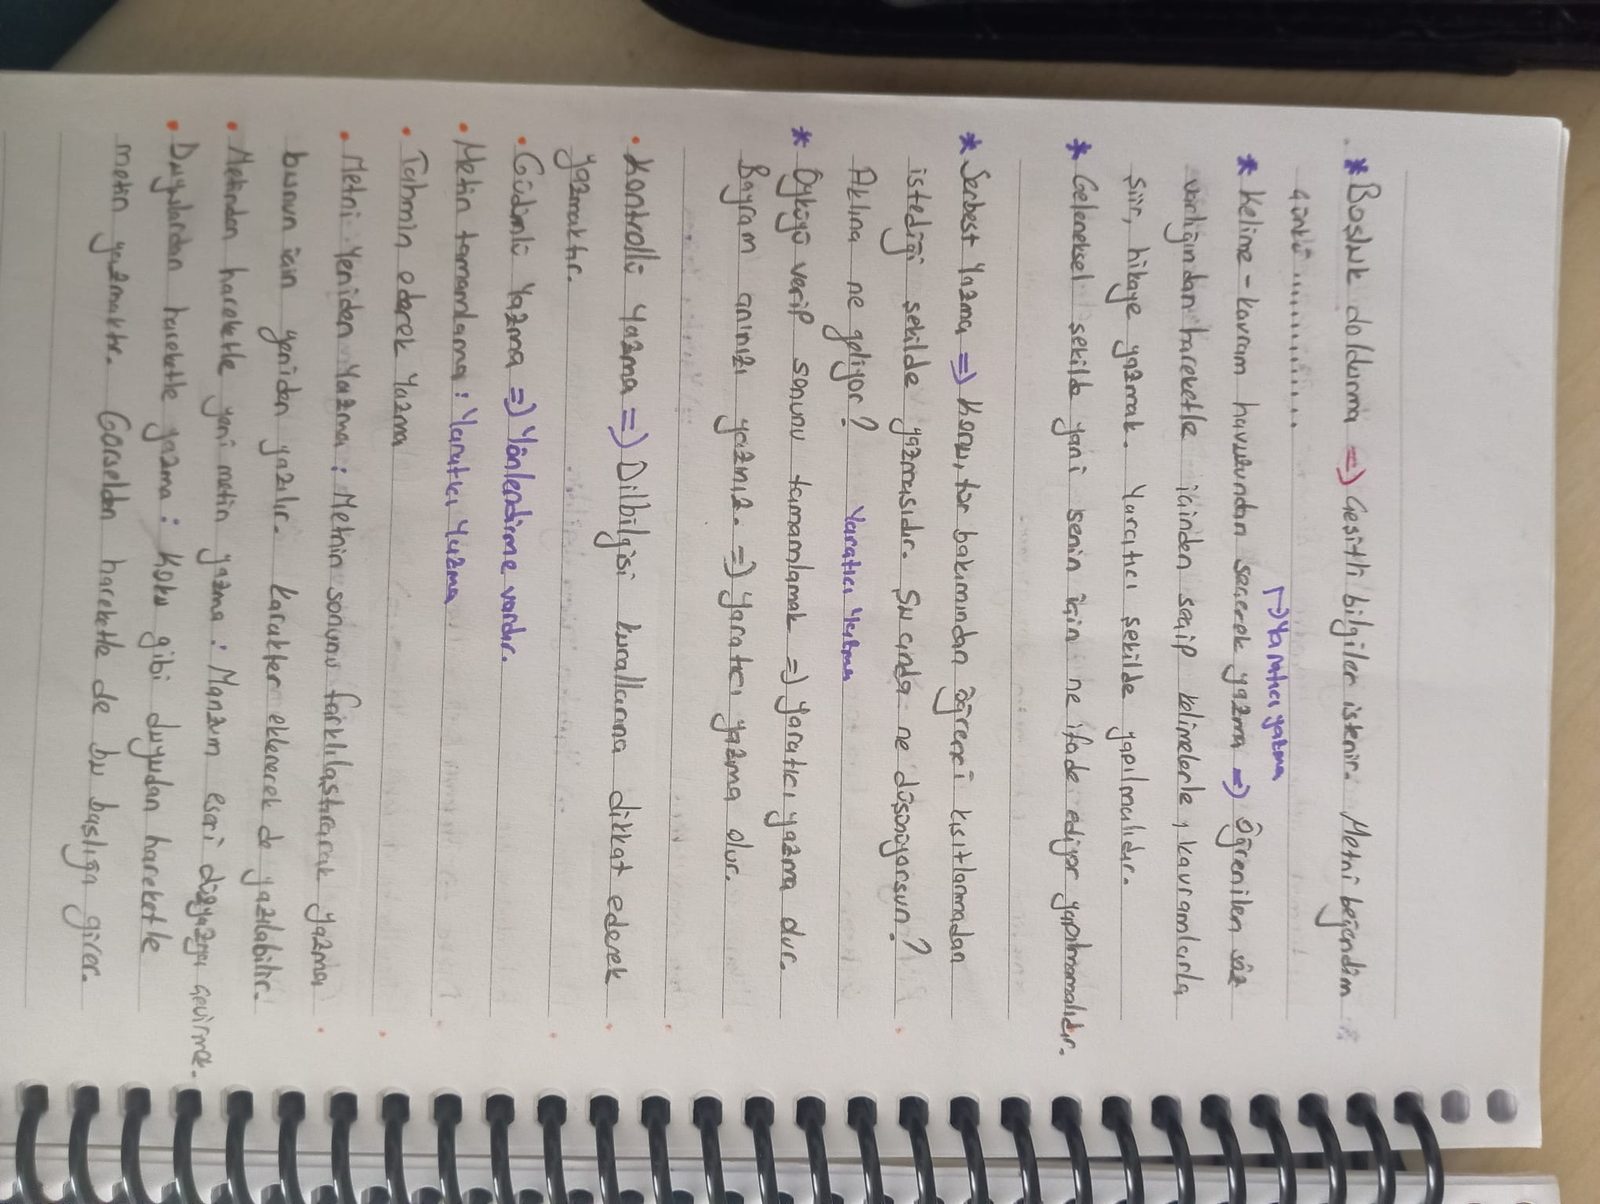 * Boşluk doldurma => Çeşitli bilgiler istenir. Metni beğendim
çünkü ..............
↱> Yaratıcı yazma
* Kelime - kavram havuzundan seçerek yazma => Öğrenilen söz
varlığından hareketle içinden seçip kelimelerle, kavramlarla
şiir, hikaye yazmak. Yaratıcı şekilde yapılmalıdır.
* Geleneksel şekilde yani senin için ne ifade ediyor yapılmamalıdır.
* Serbest Yazma => Konu, tür bakımından öğrenci kısıtlanmadan
istediği şekilde yazmasıdır. Şu anda ne düşünüyorsun?
Aklına ne geliyor? Yaratıcı Yazma
* Öyküyü verip sonunu tamamlamak => yaratıcı yazma dur.
Bayram anınızı yazınız. => yaratıcı yazma olur.
• Kontrollü Yazma => Dilbilgisi kurallarına dikkat ederek
yazmaktır.
• Güdümlü Yazma => Yönlendirme vardır.
• Metin tamamlama : Yaratıcı Yazma
• Tahmin ederek Yazma
• Metni Yeniden Yazma : Metnin sonunu farklılaştırarak yazma
bunun için yeniden yazılır. Karakter eklenerek de yazılabilir.
• Metinden hareketle yeni metin yazma : Manzum eseri düzyazıya çevirmek.
• Duyulardan hareketle yazma : Koku gibi duyudan hareketle
metin yazmaktır. Görselden hareketle de bu başlığa girer.